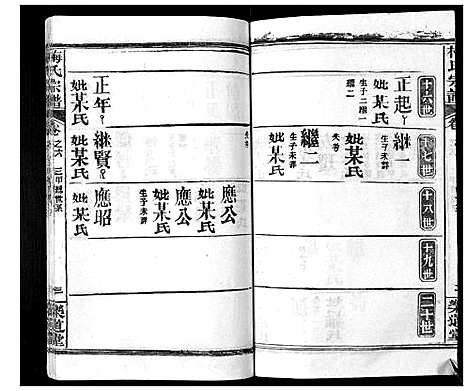 梅氏宗譜
卷
十六世
十七世
十八世
十九世
二十世
正起
妣某氏
生子二繼一
繼二
繼一
妣某氏
生子未詳
妣某氏
失考
繼二
生子未詳
失考
應公
妣某氏
生子未詳
應公
妣某氏
生子未詳
正年
妣某氏
繼賢
妣某氏
應昭
妣某氏
梅氏宗譜
卷之六
三甲
世系
三
樂道堂
樂道堂